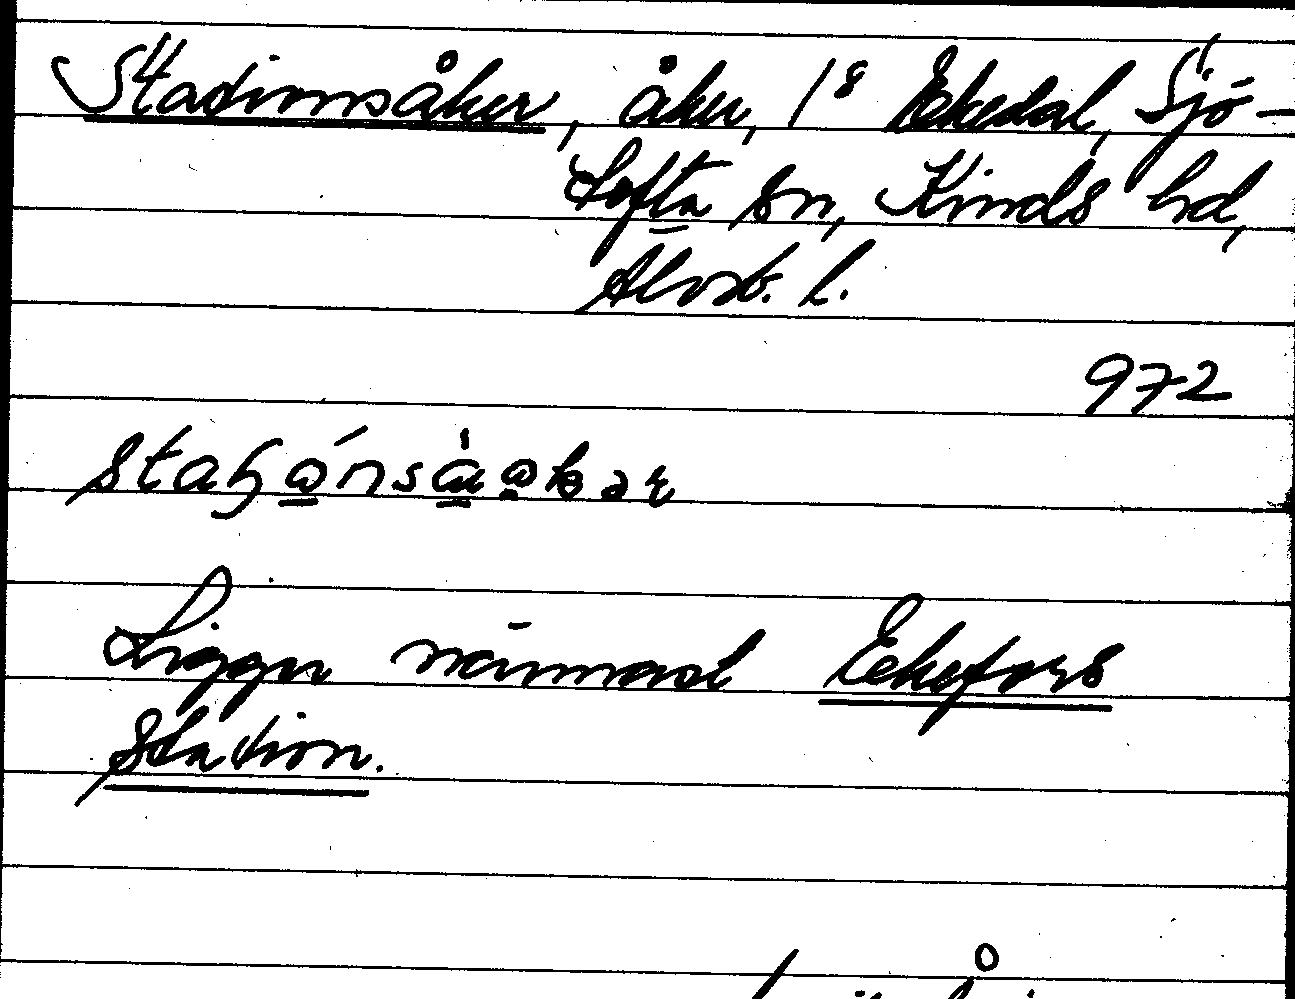 Stationsåker, åker, 1⁸ Ekedal, Sjö-
tofta sn, Kinds hd,
Älvsb. l.
972
Ligger närmast Ekefors
station.